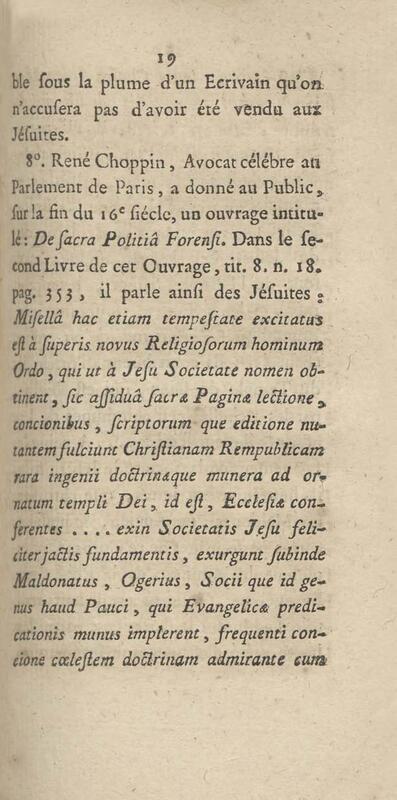 19
ble sous la plume d'un Ecrivain qu'on
n'accusera pas d'avoir été vendu aux
Jésuites.
8°. René Choppin, Avocat célébre au
Parlement de Paris, a donné au Public,
sur la fin du 16e siécle, un ouvrage intitu-
lé : De sacra Politiâ Forensi. Dans le se-
cond Livre de cet Ouvrage, tit. 8. n. 18.
pag. 353, il parle ainsi des Jésuites :
Misellâ hac etiam tempestate excitatus
est à superis novus Religiosorum hominum
Ordo, qui ut à Jesu Societate nomen ob-
tinent, sic assiduâ sacræ Paginæ lectione,
concionibus, scriptorum que editione nu-
tantem fulciunt Christianam Rempublicam
rara ingenii doctrinæque munera ad or-
natum templi Dei, id est, Ecclesiæ con-
ferentes .... exin Societatis Jesu feli-
citer jactis fundamentis, exurgunt subinde
Maldonatus, Ogerius, Socii que id ge-
nus haud Pauci, qui Evangelicæ predi-
cationis munus implerent, frequenti con-
cione cœlestem doctrinam admirante cum